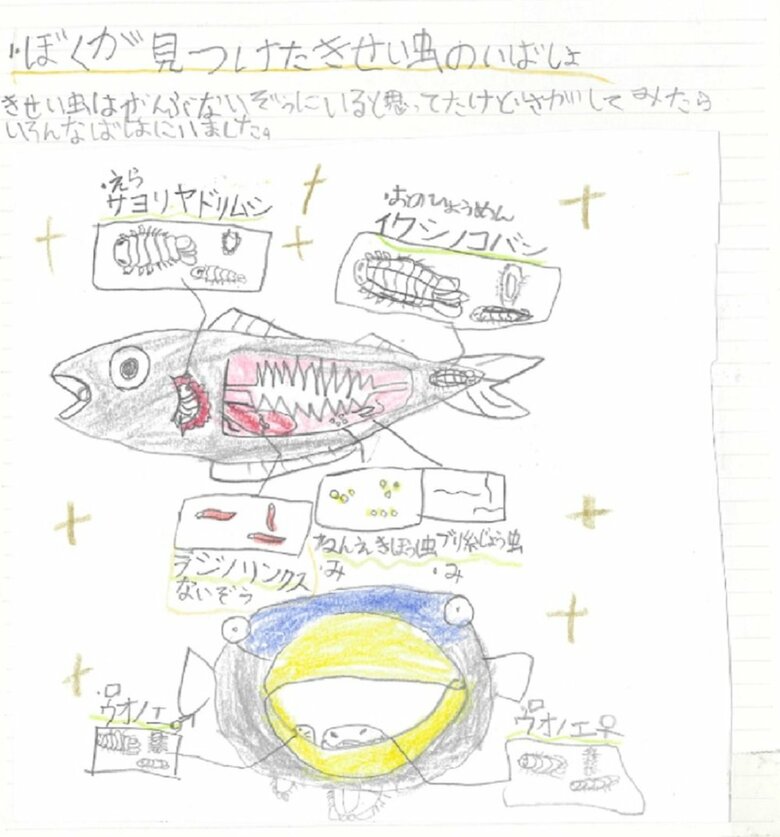 1.ぼくが見つけたきせい虫のいばしょ
きせい虫はかんぶないぞうにいると思ってたけどさがしてみたら
いろんなばしょにいました。
・えら
サヨリヤドリムシ
・おのひょうめん
イワシノコバン
ラジノリンクス
ないぞう
ねんえきほう虫
・み
ブリ糸じょう虫
・み
・口
ウオノエ♂
・口
ウオノエ♀